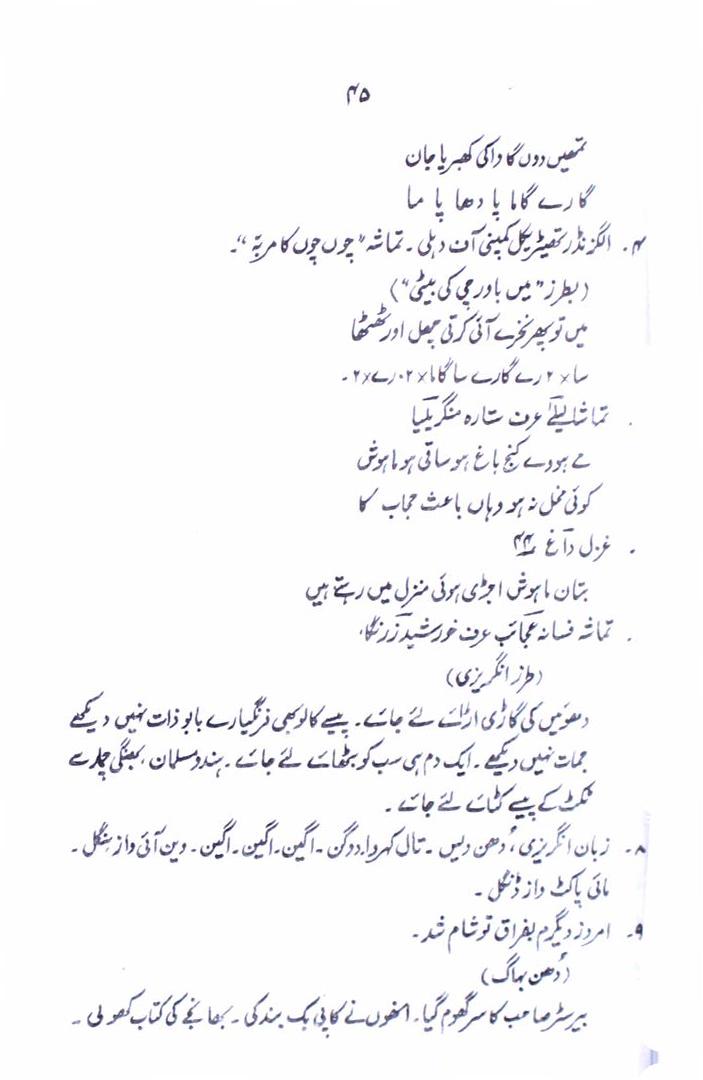 ۴۵
تمھیں دوں گا داکی کھبریا جان
گا رے گا ما پا دھا پا ما
۴۔ الگزنڈر تھیٹریکل کمپنی آف دہلی۔ تماشہ "چوں چوں کا مربّہ"۔
(بطرز "میں باورچی کی بیٹی")
میں تو پھر نخرے آئی کرتی چہل اور ٹھٹھا
سا×۲ رے گا رے سا گا ما×۲۰ رے×۲۔
۔ تماشا لیلےٰ عرف ستارہ منگریلیا
مے ہووے کنج باغ ہو ساقی ہو ماہوش
کوئی مخل نہ ہو وہاں باعث حجاب کا
۔ غزل داغ ۴۴
بتان ماہوش اجڑی ہوئی منزل میں رہتے ہیں
۔ تماشہ فسانہ عجائب عرف خورشید زرنگار
(طرز انگریزی)
دھوئیں کی گاڑی اڑائے لئے جائے۔ پیسے کا لوبھی فرنگیا رے بابو ذات نہیں دیکھے
جمات نہیں دیکھے۔ ایک دم ہی سب کو بٹھائے لئے جائے۔ ہندو مسلمان، بھنگی چمارے
ٹکٹ کے پیسے کٹائے لئے جائے۔
۸۔ زبان انگریزی، دُھن دیس۔ تال کہروا، دوگن۔ اگین۔ اگین۔ اگین۔ وین آئی واز سنگل۔
مائی پاکٹ واز ڈنگل۔
۹۔ امروز دیگرم بفراق تو شام شد۔
(دُھن بہاگ)
بیرسٹر صاحب کا سر گھوم گیا۔ انھوں نے کاپی بک بند کی۔ بھانجے کی کتاب کھولی۔